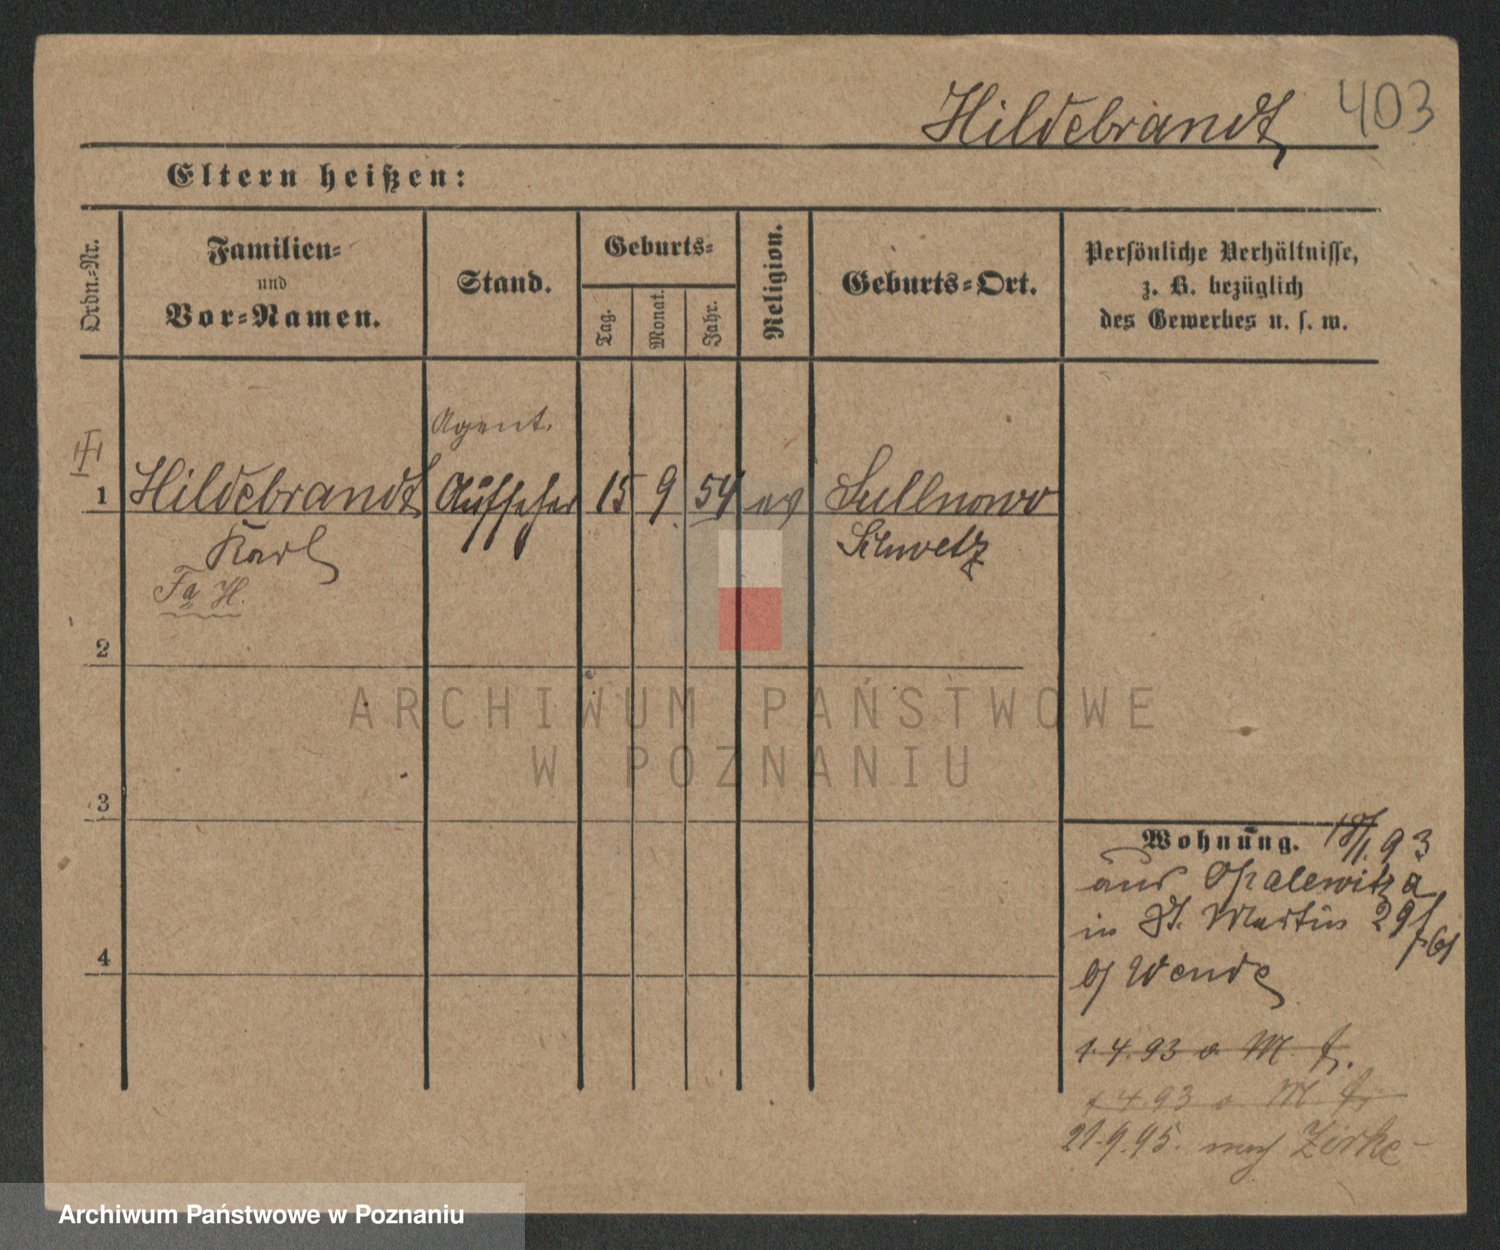 Hildebrandt 403
Eltern heißen:
Ordn.=Nr.
Familien=
und
Vor=Namen.
Stand.
Geburts=
Tag.
Monat.
Jahr.
Religion.
Geburts=Ort.
Persönliche Verhältnisse,
z. B. bezüglich
des Gewerbes u. s. w.
Agent.
1 Hildebrandt Aufseher 15 9. 54 ev Sullnowo
Karl Schwetz
Fa H.
2
3
4
Wohnung. 18/1. 93
aus Opalewitza
in St. Martin 29
b/ Wende
1. 4. 93 a. M. f.
1 4. 93 a. M. f.
21. 9. 95. nach Zirke
ARCHIWUM PAŃSTWOWE
W POZNANIU
Archiwum Państwowe w Poznaniu